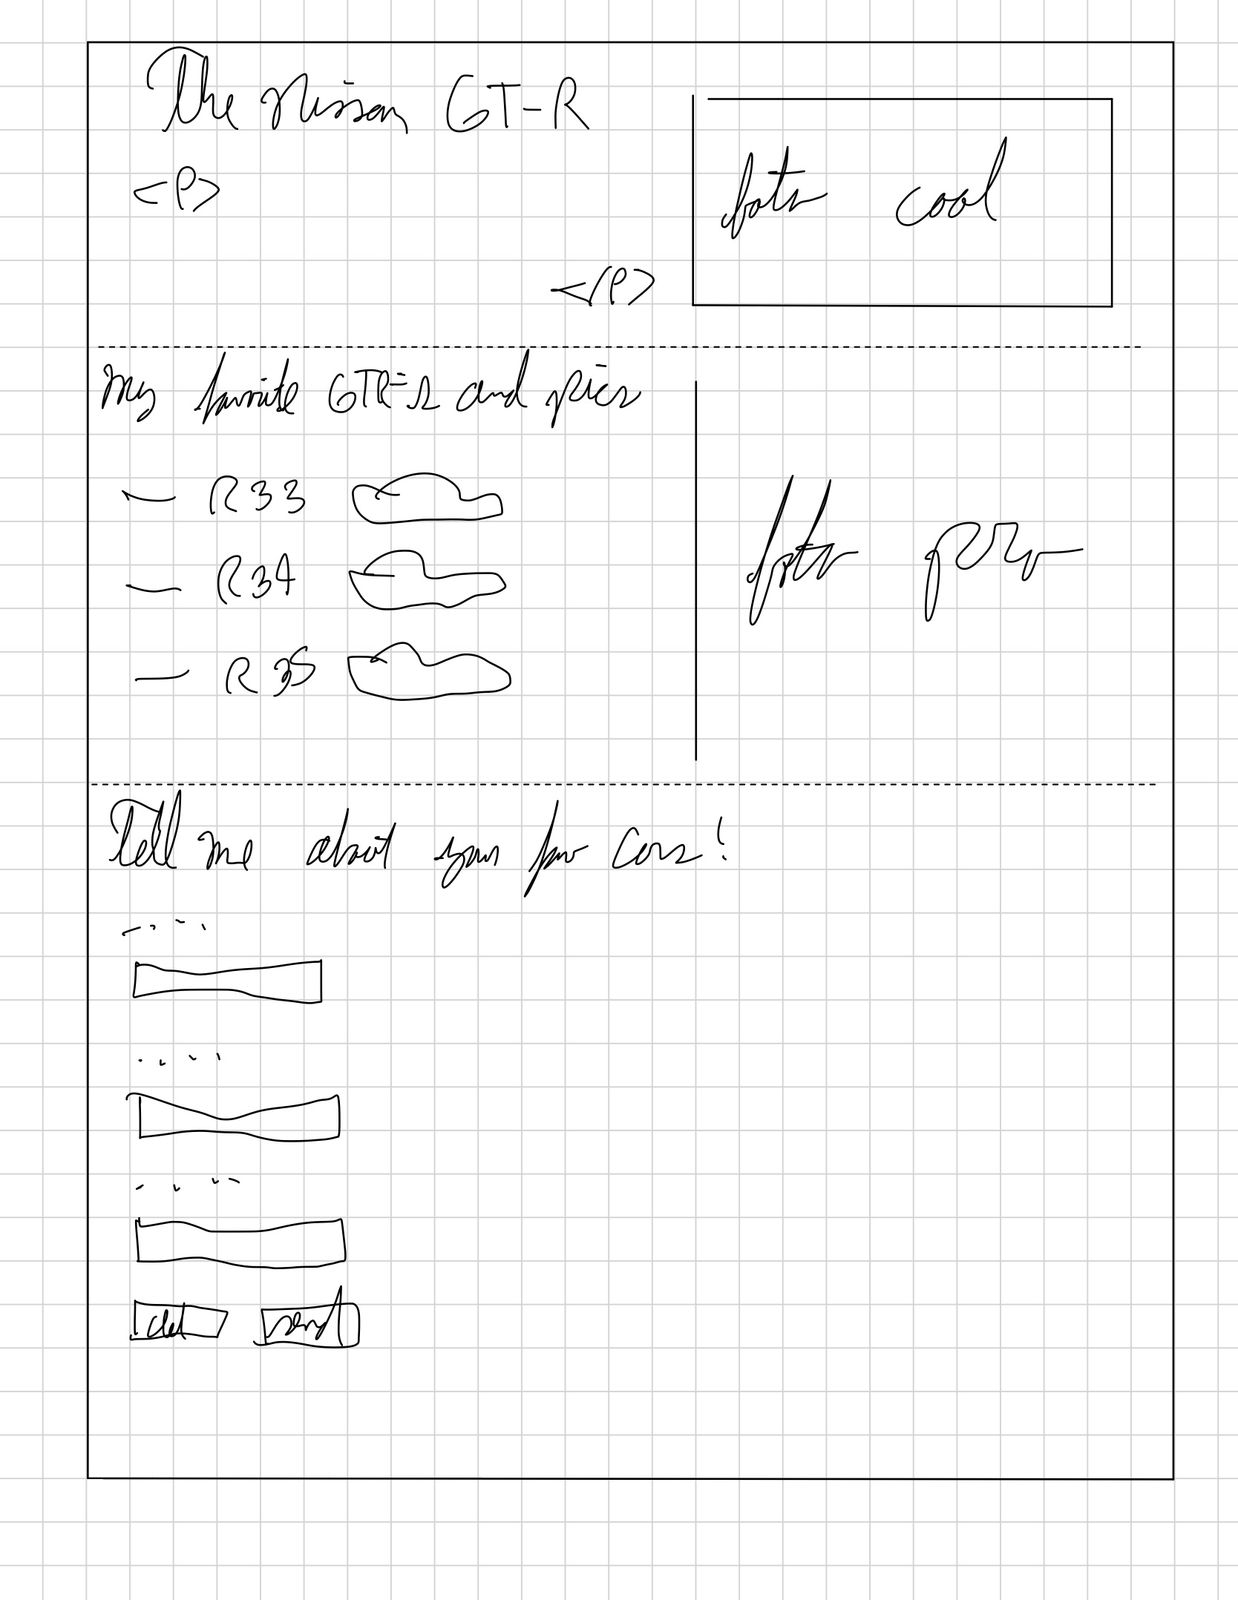 The Nissan GT-R
<P>
foto cool
</P>
My favorite GTR-s and pics
- R33
- R34
- R35
foto
Tell me about your fav cars!
del send